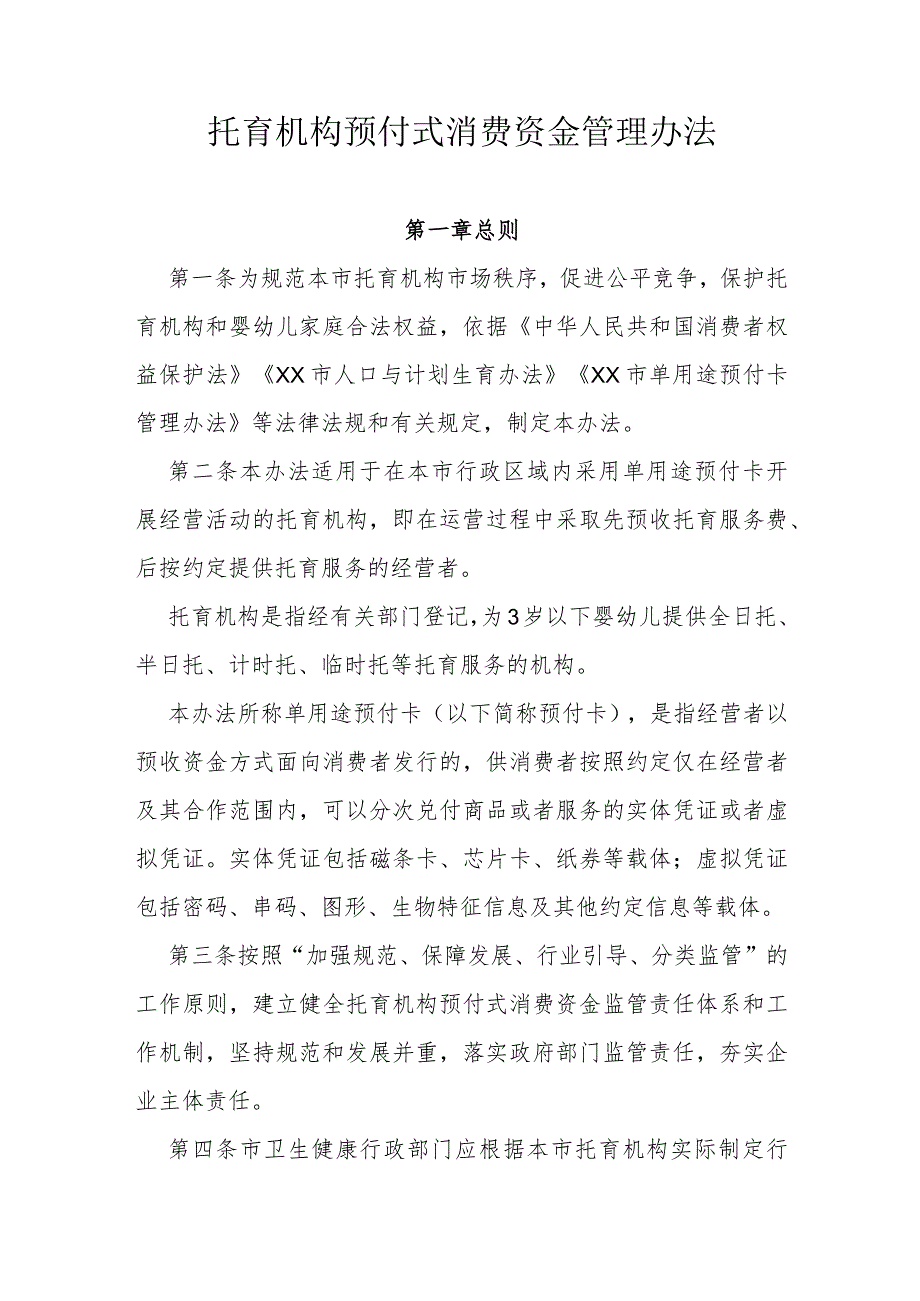 托育机构预付式消费资金管理办法
第一章总则
第一条为规范本市托育机构市场秩序，促进公平竞争，保护托
育机构和婴幼儿家庭合法权益，依据《中华人民共和国消费者权
益保护法》《XX 市人口与计划生育办法》《XX 市单用途预付卡
管理办法》等法律法规和有关规定，制定本办法。
第二条本办法适用于在本市行政区域内采用单用途预付卡开
展经营活动的托育机构，即在运营过程中采取先预收托育服务费、
后按约定提供托育服务的经营者。
托育机构是指经有关部门登记，为 3 岁以下婴幼儿提供全日托、
半日托、计时托、临时托等托育服务的机构。
本办法所称单用途预付卡（以下简称预付卡），是指经营者以
预收资金方式面向消费者发行的，供消费者按照约定仅在经营者
及其合作范围内，可以分次兑付商品或者服务的实体凭证或者虚
拟凭证。实体凭证包括磁条卡、芯片卡、纸券等载体；虚拟凭证
包括密码、串码、图形、生物特征信息及其他约定信息等载体。
第三条按照“加强规范、保障发展、行业引导、分类监管”的
工作原则，建立健全托育机构预付式消费资金监管责任体系和工
作机制，坚持规范和发展并重，落实政府部门监管责任，夯实企
业主体责任。
第四条市卫生健康行政部门应根据本市托育机构实际制定行